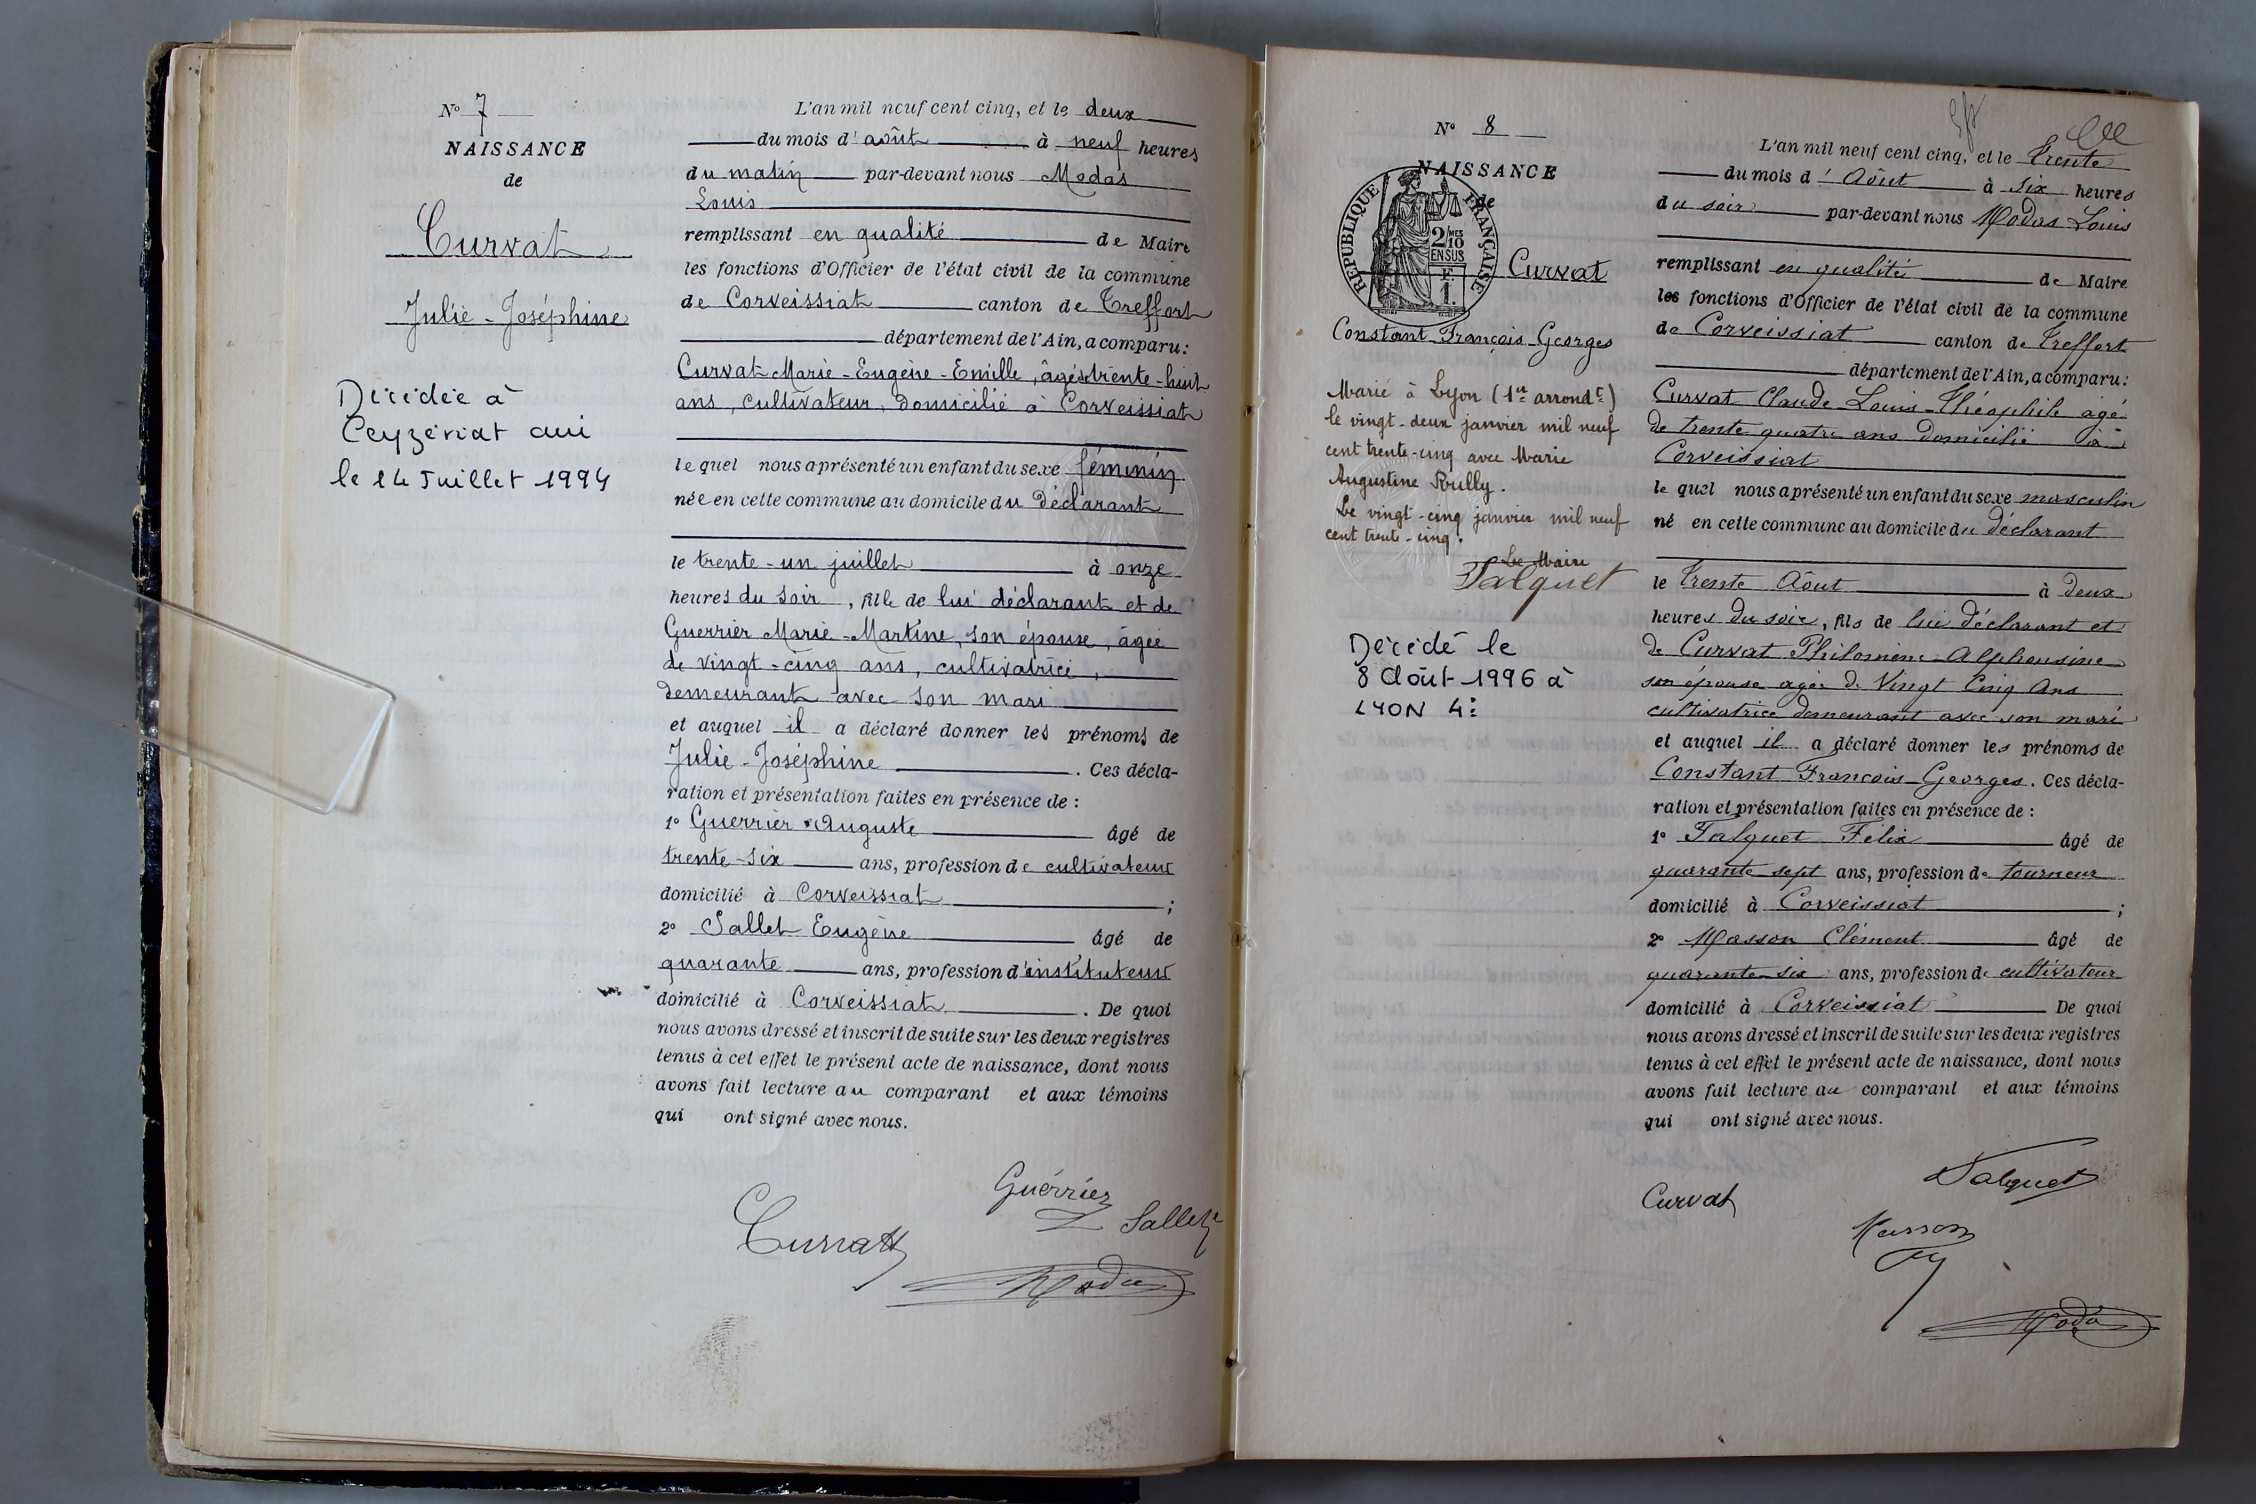 N° 7
NAISSANCE
de
Curvat
Julie-Joséphine
Décédée à
Ceyzériat Ain
le 14 Juillet 1994
L'an mil neuf cent cinq, et le deux
du mois d'août à neuf heures
du matin par-devant nous Modas
Louis
remplissant en qualité de Maire
les fonctions d'Officier de l'état civil de la commune
de Corveissiat canton de Treffort
département de l'Ain, a comparu:
Curvat Marie-Eugène-Emille, âgé de trente-huit
ans, cultivateur, domicilié à Corveissiat
lequel nous a présenté un enfant du sexe féminin
née en cette commune au domicile du déclarant
le trente-un juillet à onze
heures du soir, fille de lui déclarant et de
Guerrier Marie-Martine, son épouse, âgée
de vingt-cinq ans, cultivatrice,
demeurant avec son mari
et auquel il a déclaré donner les prénoms de
Julie-Joséphine. Ces décla-
ration et présentation faites en présence de :
1° Guerrier Auguste âgé de
trente-six ans, profession de cultivateur
domicilié à Corveissiat ;
2° Sallet Eugène âgé de
quarante ans, profession d'instituteur
domicilié à Corveissiat. De quoi
nous avons dressé et inscrit de suite sur les deux registres
tenus à cet effet le présent acte de naissance, dont nous
avons fait lecture au comparant et aux témoins
qui ont signé avec nous.
Guérrier
Curvat Sallet
Modas
N° 8
NAISSANCE
de
RÉPUBLIQUE FRANÇAISE
2/10 MES
EN SUS
F.
1.
Curvat
Constant-François-Georges
Marié à Lyon (1er arrondt)
le vingt-deux janvier mil neuf
cent trente-cinq avec Marie
Augustine Rully.
Le vingt-cinq janvier mil neuf
cent trente-cinq.
Le Maire
Falquet
Décédé le
8 Août 1996 à
LYON 4e
L'an mil neuf cent cinq, et le trente
du mois d'Aôut à six heures
du soir par-devant nous Modas Louis
remplissant en qualité de Maire
les fonctions d'Officier de l'état civil de la commune
de Corveissiat canton de Treffort
département de l'Ain, a comparu:
Curvat Claude-Louis-Théophile agé
de trente quatre ans domicilié à
Corveissiat
lequel nous a présenté un enfant du sexe masculin
né en cette commune au domicile du déclarant
le trente Aôut à deux
heures du soir, fils de lui déclarant et
de Curvat Philomène-Alphonsine
son épouse agée de Vingt Cinq Ans
cultivatrice demeurant avec son mari
et auquel il a déclaré donner les prénoms de
Constant François-Georges. Ces décla-
ration et présentation faites en présence de :
1° Falquet Félix âgé de
quarante sept ans, profession de tourneur
domicilié à Corveissiat ;
2° Masson Clément âgé de
quarante six ans, profession de cultivateur
domicilié à Corveissiat De quoi
nous avons dressé et inscrit de suite sur les deux registres
tenus à cet effet le présent acte de naissance, dont nous
avons fait lecture au comparant et aux témoins
qui ont signé avec nous.
Falquet
Curvat
Masson
Modas